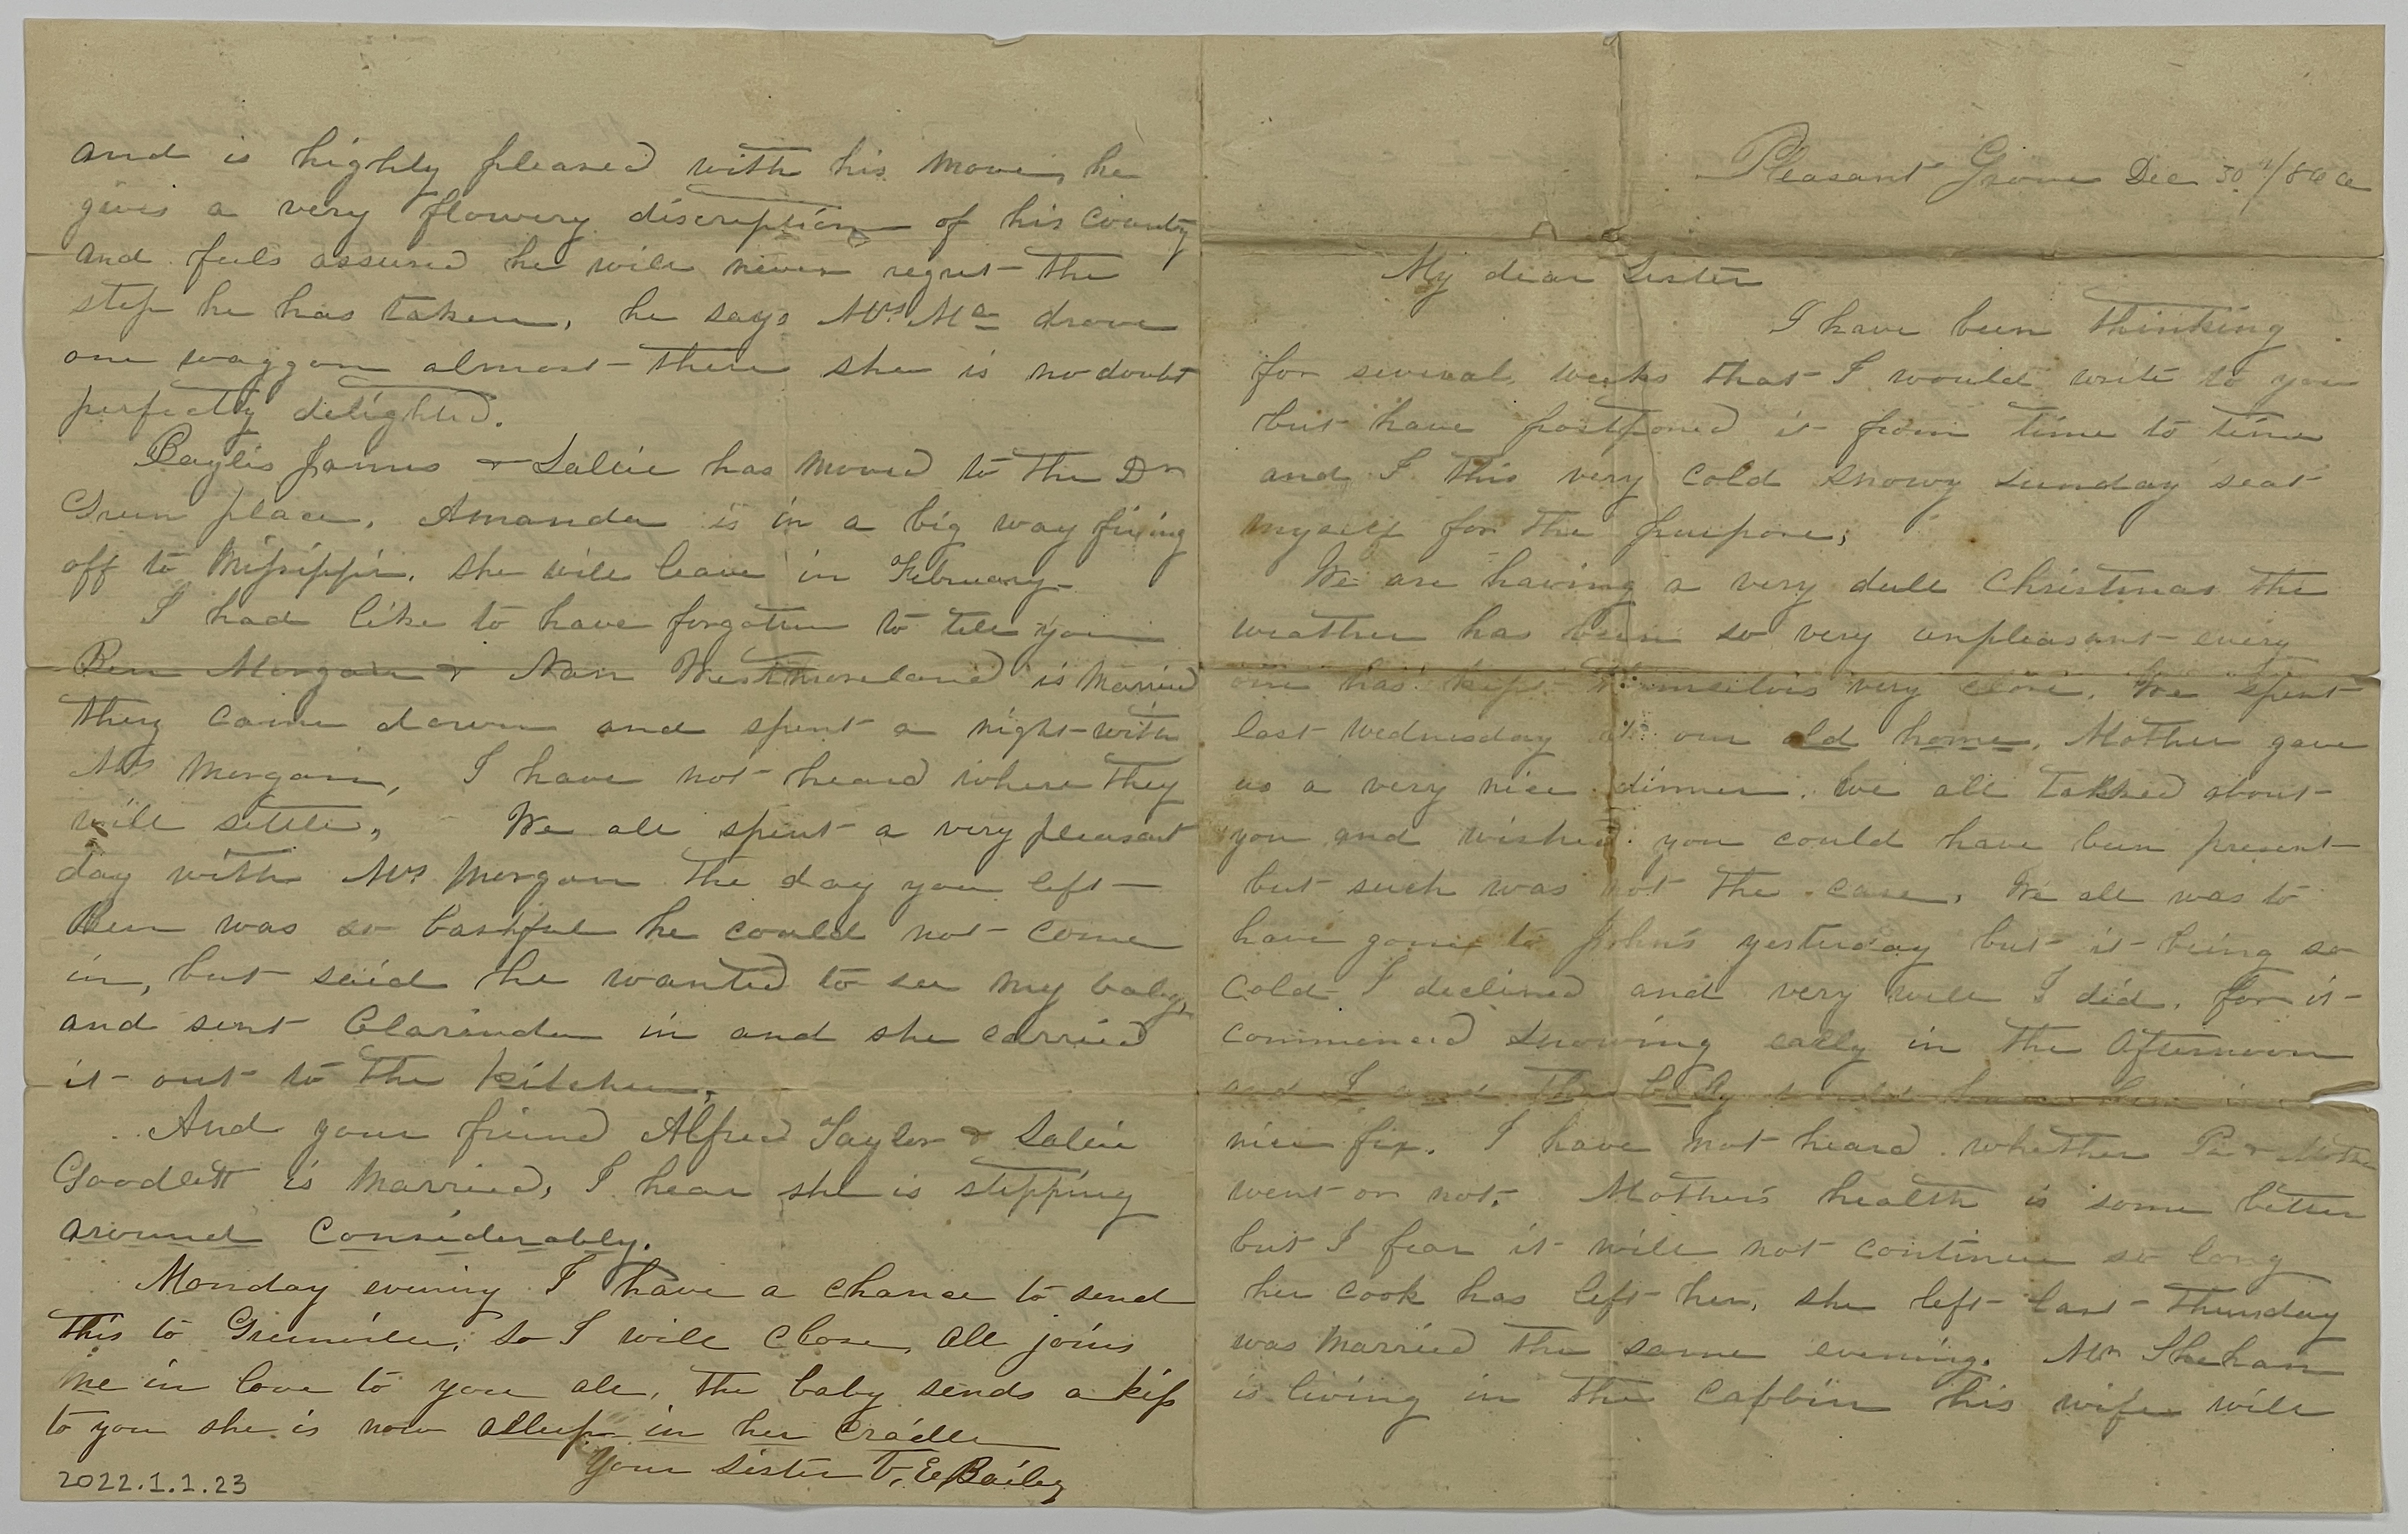 Pleasant Grove Dec 30th /866
My dear Sister
I have been thinking
for several weeks that I would write to you
but have postponed it from time to time
and I this very cold snowy sunday seat
myself for the purpose;
We are having a very dull Christmas the
weather has been so very unpleasant every
one has kept themselves very close. We spent
last wednesday at our old home, Mother gave
us a very nice dinner. We all talked about
you and wished you could have been present
but such was not the case, We all was to
have gone to John's yesterday but it being so
cold I declined and very well I did, for it
commenced snowing early in the afternoon
and I and the baby would have been in a
nice fix. I have not heard whether Pa & Mother
went or not. Mother's health is some better
but I fear it will not continue so long
her cook has left her, she left last Thursday
was married the same evening. Mr Shehan
is living in the cabbin his wife will
and is highly pleased with his move, he
gives a very flowery discription of his country
and feels assured he will never regret the
step he has taken, he says Mrs Mc drove
one waggon almost there she is no doubt
perfectly delighted.
Baylis James & Sallie has moved to the Dr
Green place, Amanda is in a big way fixing
off to Missippi, she will leave in February
I had like to have forgotten to tell you
Ben Morgan & Nan Westmoreland is married
they came down and spent a night with
Mrs Morgan, I have not heard where they
will settle, We all spent a very pleasant
day with Mrs Morgan the day you left
Ben was so bashful he could not come
in, but said he wanted to see my baby,
and sent Clarinda in and she carried
it out to the kitchen,
And your friend Alfred Taylor & Sallie
Goodlett is married, I hear she is stepping
around considerably.
Monday evening I have a chance to send
this to Greenville, so I will close, all joins
me in love to you all, the baby sends a kiss
to you she is now alleep in her cradle
Your sister T. E. Bailey
2022.1.1.23